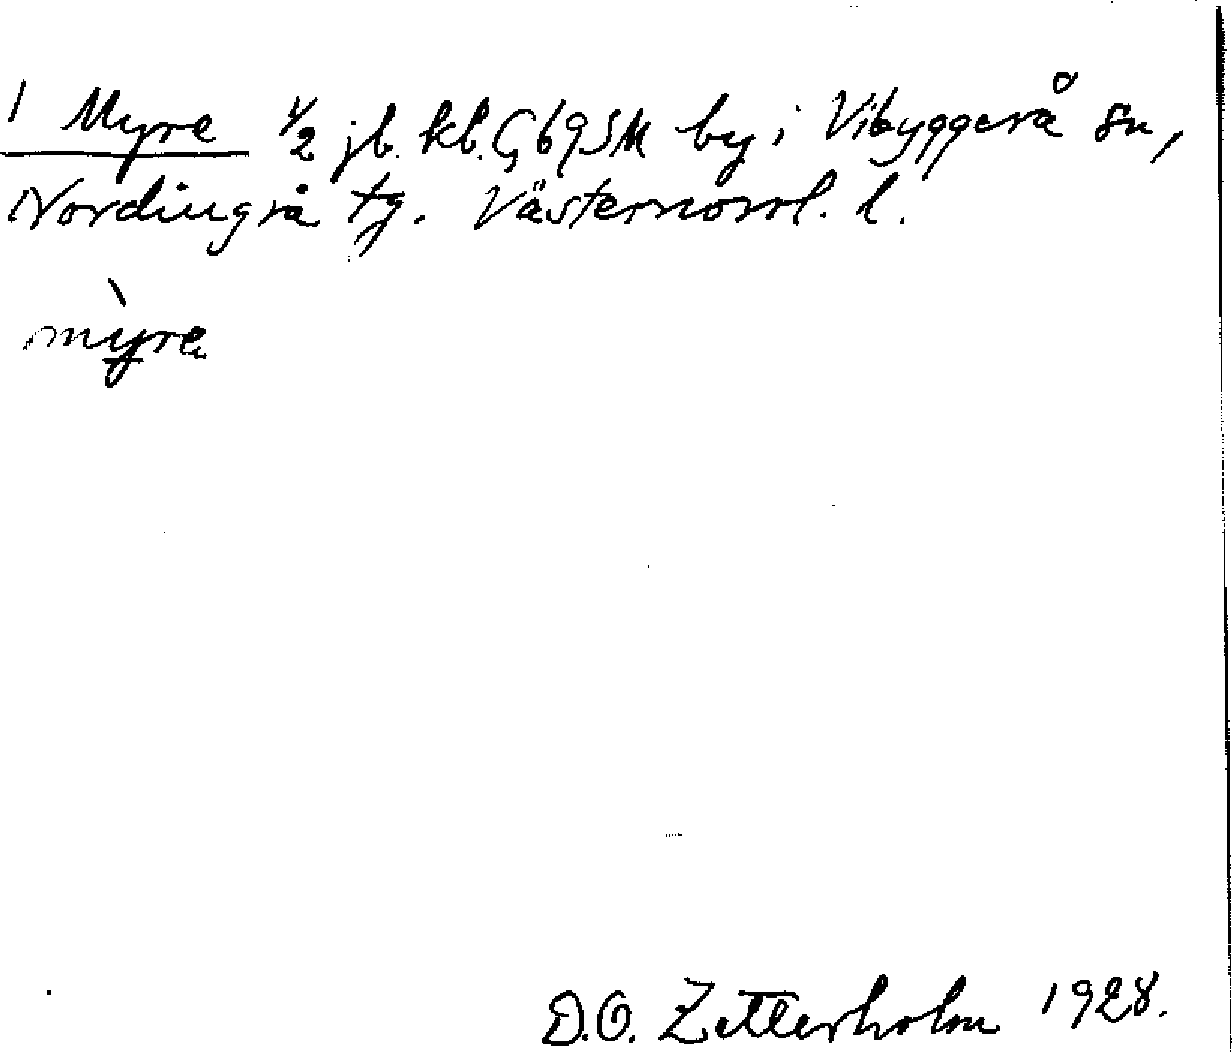 1 Myre 1/2 jb. kb. G69SM by i Vibyggerå sn,
Nordingrå tg. Västernorrl. l.
mỳre
D.O. Zetterholm 1928.